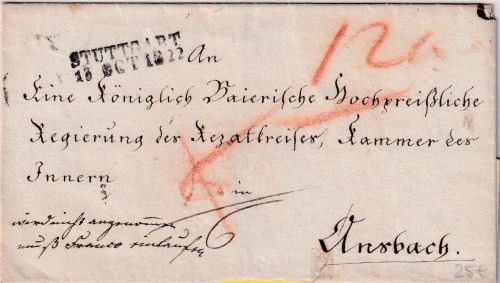 STUTTGART
16 OCT 1822
12
An
Eine Königlich Baierische Hochpreißliche
Regierung des Rezatkreises, Kammer des
Innern
in
wird nicht angenommen
muß Franco einlaufen
Ansbach.
25€